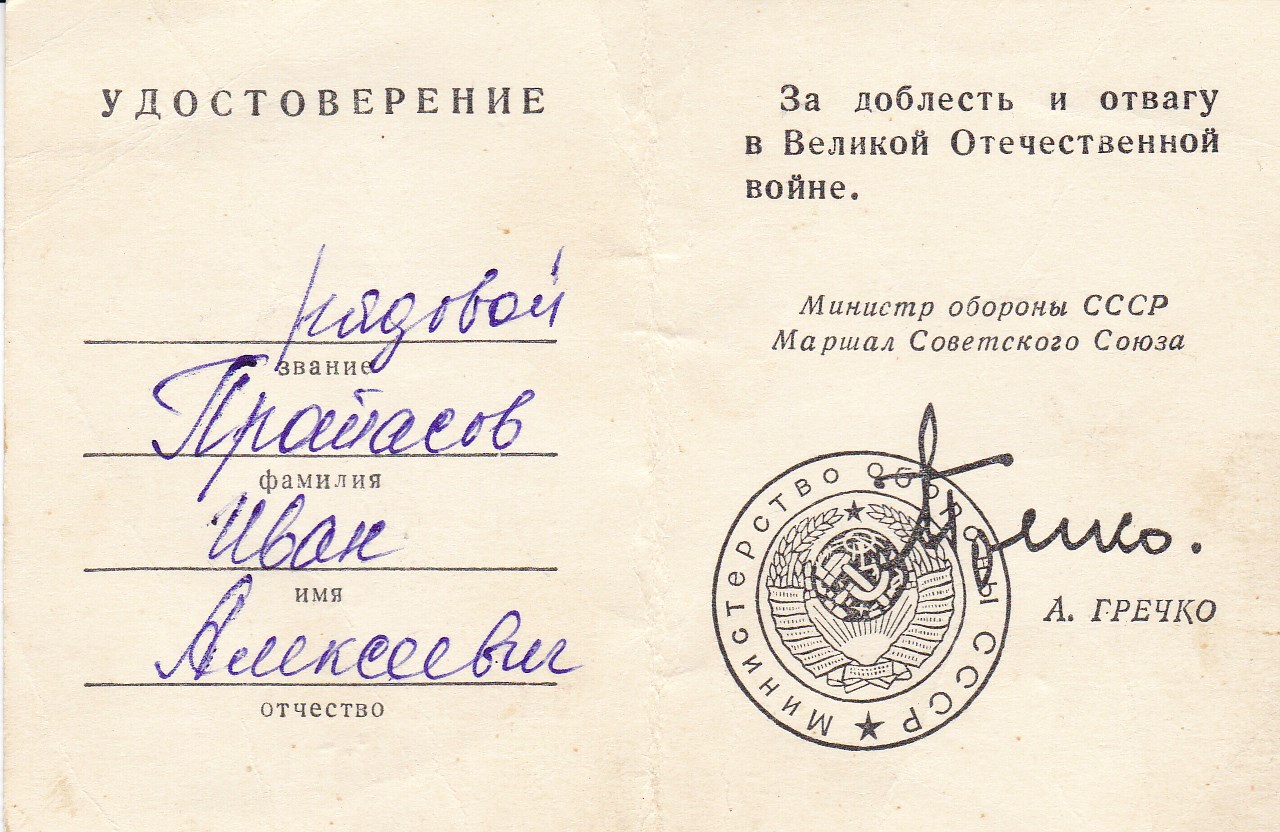 УДОСТОВЕРЕНИЕ
рядовой
звание
Протасов
фамилия
Иван
имя
Алексеевич
отчество
За доблесть и отвагу
в Великой Отечественной
войне.
Министр обороны СССР
Маршал Советского Союза
Гречко.
А. ГРЕЧКО
МИНИСТЕРСТВО ОБОРОНЫ СССР